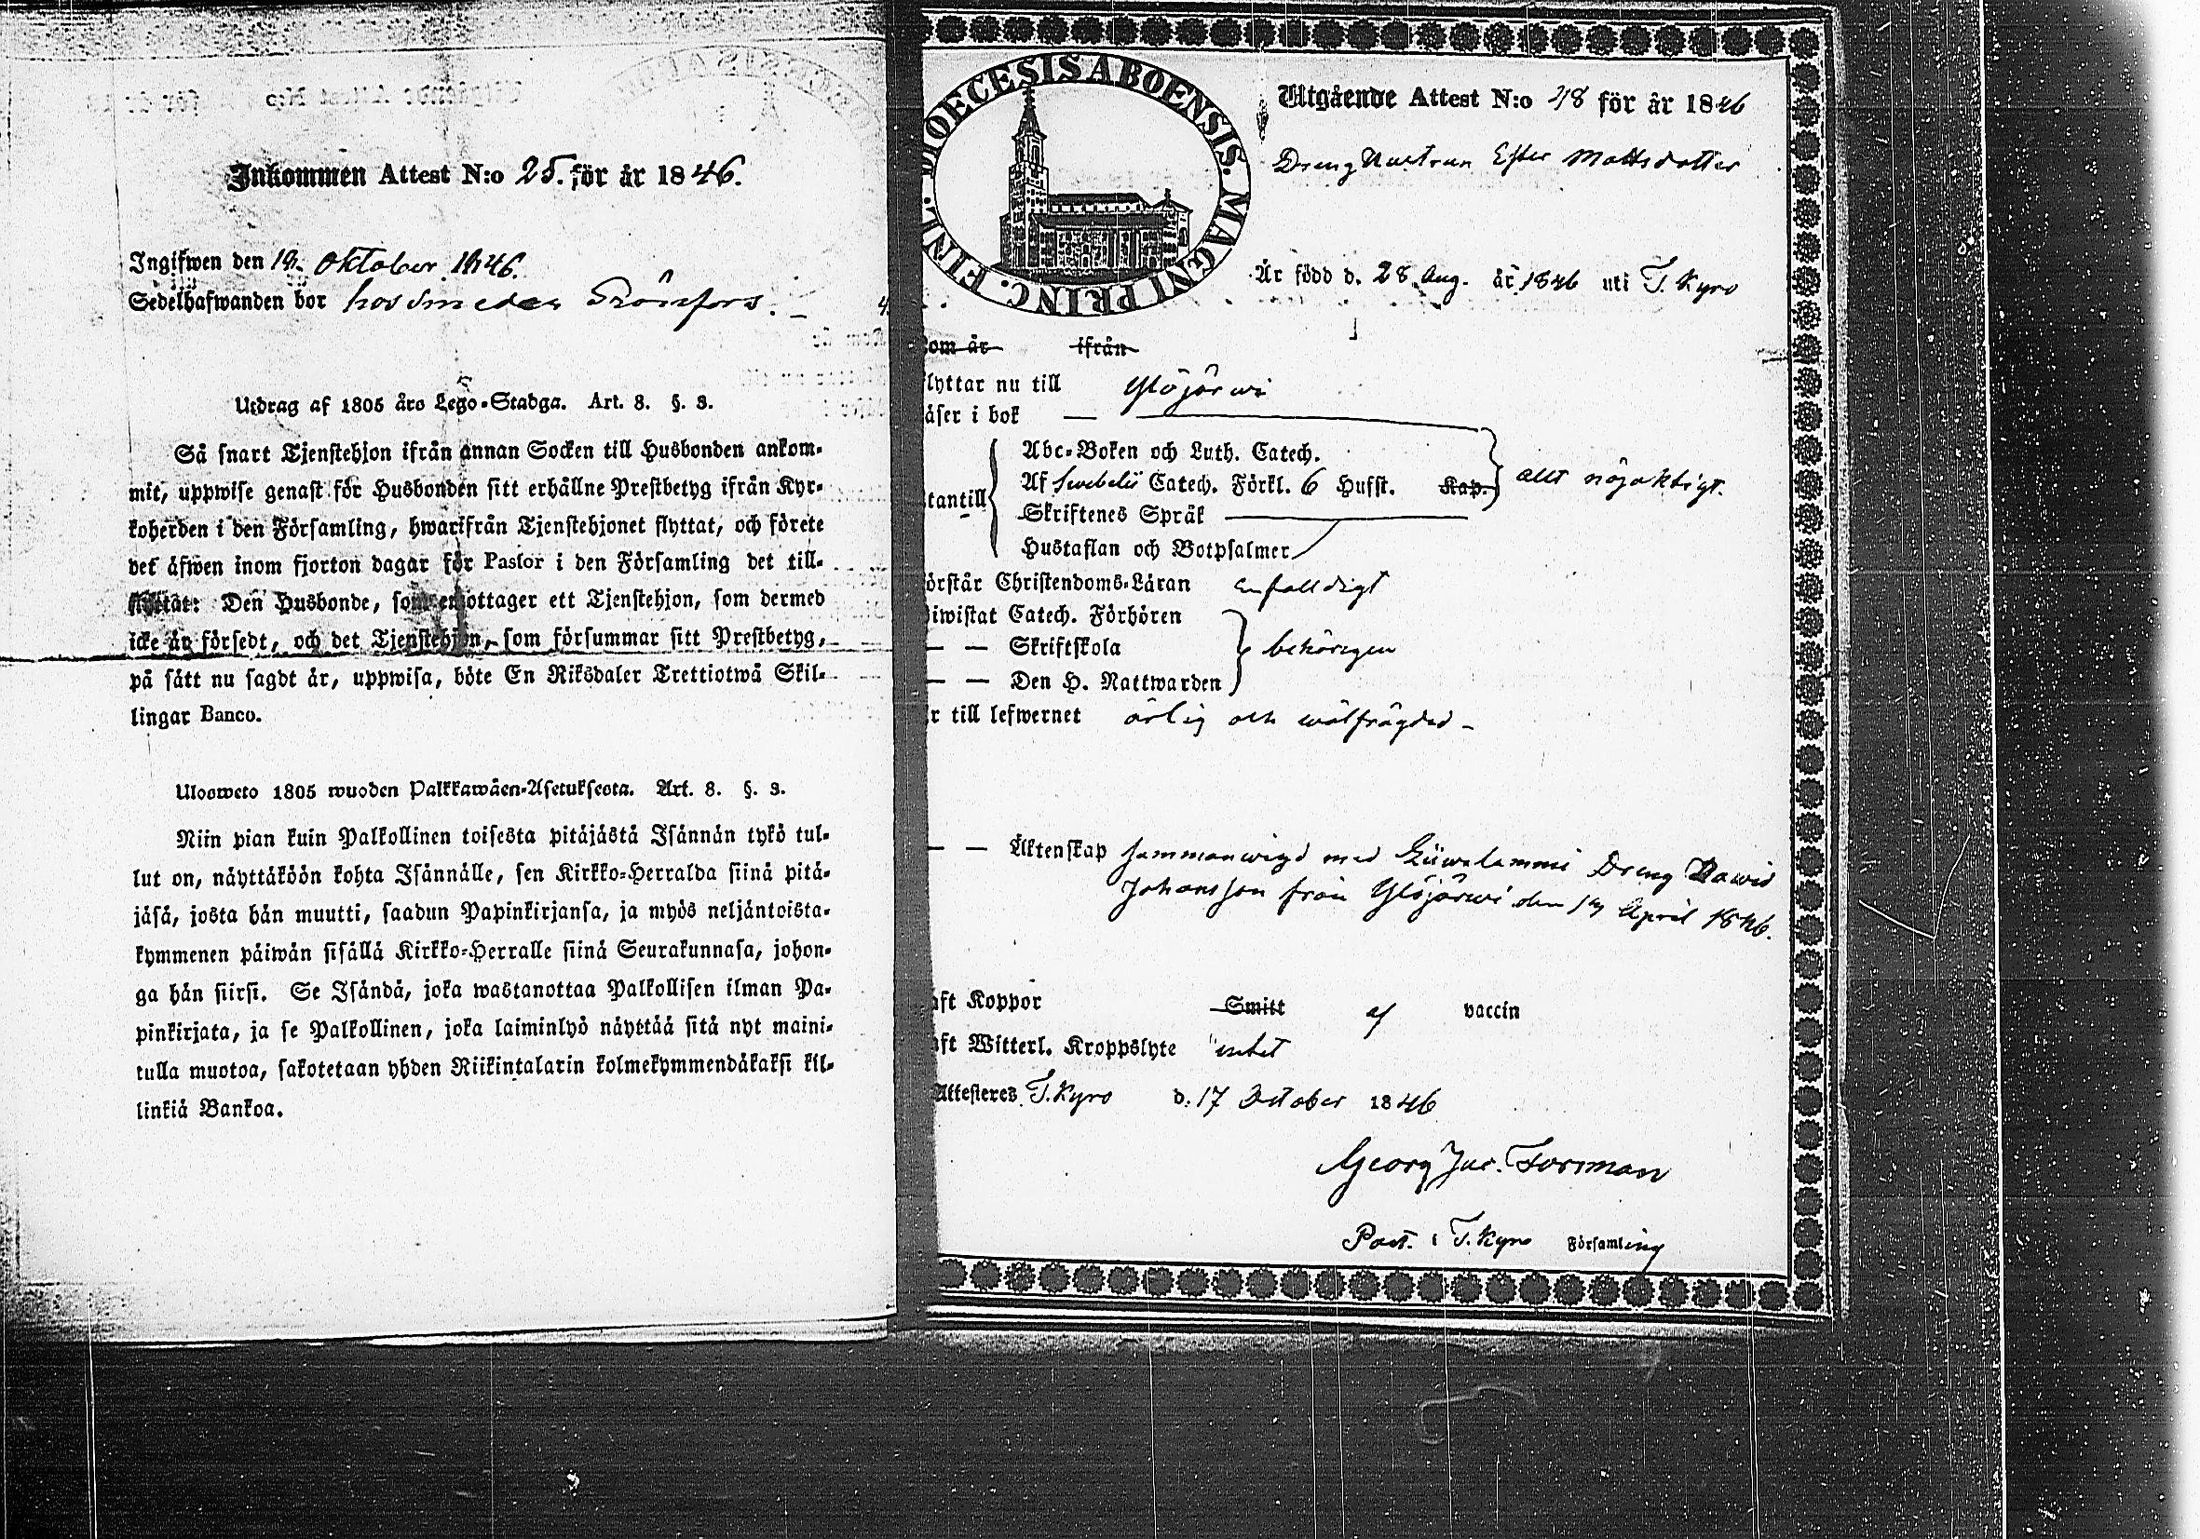 Inkommen Attest N:o 25. för år 1846.
Ingifwen den 19. Oktober 1846.
Sedelhafwanden bor hos Smeden Grönfors.
Utdrag af 1805 års Lego-Stadga. Art. 8. §. 3.
Så snart Tjenstehjon ifrån annan Socken till Husbonden ankom-
mit, uppwise genast för Husbonden sitt erhållne Prestbetyg ifrån Kyr-
koherden i den Församling, hwarifrån Tjenstehjonet flyttat, och förete
det äfwen inom fjorton dagar för Pastor i den Församling det till-
flyttat: Den Husbonde, som emottager ett Tjenstehjon, som dermed
icke är försedt, och det Tjenstehjon, som försummar sitt Prestbetyg,
på sätt nu sagdt är, uppwisa, böte En Riksdaler Trettiotwå Skil-
lingar Banco.
Ulosweto 1805 wuoden Palkkawäen-Asetuksesta. Art. 8. §. 3.
Niin pian kuin Palkollinen toisesta pitäjästä Isännän tykö tul-
lut on, näyttäköön kohta Isännälle, sen Kirkko-Herralda siinä pitä-
jäsä, josta hän muutti, saadun Papinkirjansa, ja myös neljäntoista-
kymmenen päiwän sisällä Kirkko-Herralle siinä Seurakunnasa, johon-
ga hän siirsi. Se Isändä, joka wastanottaa Palkollisen ilman Pa-
pinkirjata, ja se Palkollinen, joka laiminlyö näyttää sitä nyt maini-
tulla muotoa, sakotetaan yhden Riikintalarin kolmekymmendäkaksi kil-
linkiä Bankoa.
DIOECESIS ABOENSIS. MAGNI PRINC. FINL.
Utgående Attest N:o 48 för år 1846
Dreng Hustrun Ester Mattsdotter
Är född d. 28 Aug. år 1846 uti T. Kyro
Kom år ifrån
flyttar nu till Ylöjärwi
Läser i bok —
Abc-Boken och Luth. Catech.
Af Swebelii Catech. Förkl. 6 Hufst. Kap. allt nöjaktigt.
utantill
Skriftenes Språk
Hustaflan och Botpsalmer
förstår Christendoms-Läran enfalldigt
biwistat Catech. Förhören
— — Skriftskola behörigen
— — Den H. Nattwarden
är till lefwernet ärlig och wälfrägdad –
— — Äktenskap sammanwigd med Dreng Dawid
Johansson från Ylöjärwi den April 1846.
haft Koppor Smitt af vaccin
haft Witterl. Kroppslyte intet
Attesteres T. Kyro d. 17 October 1846
Georg Jac. Forsman
Past. i T. Kyro Församling